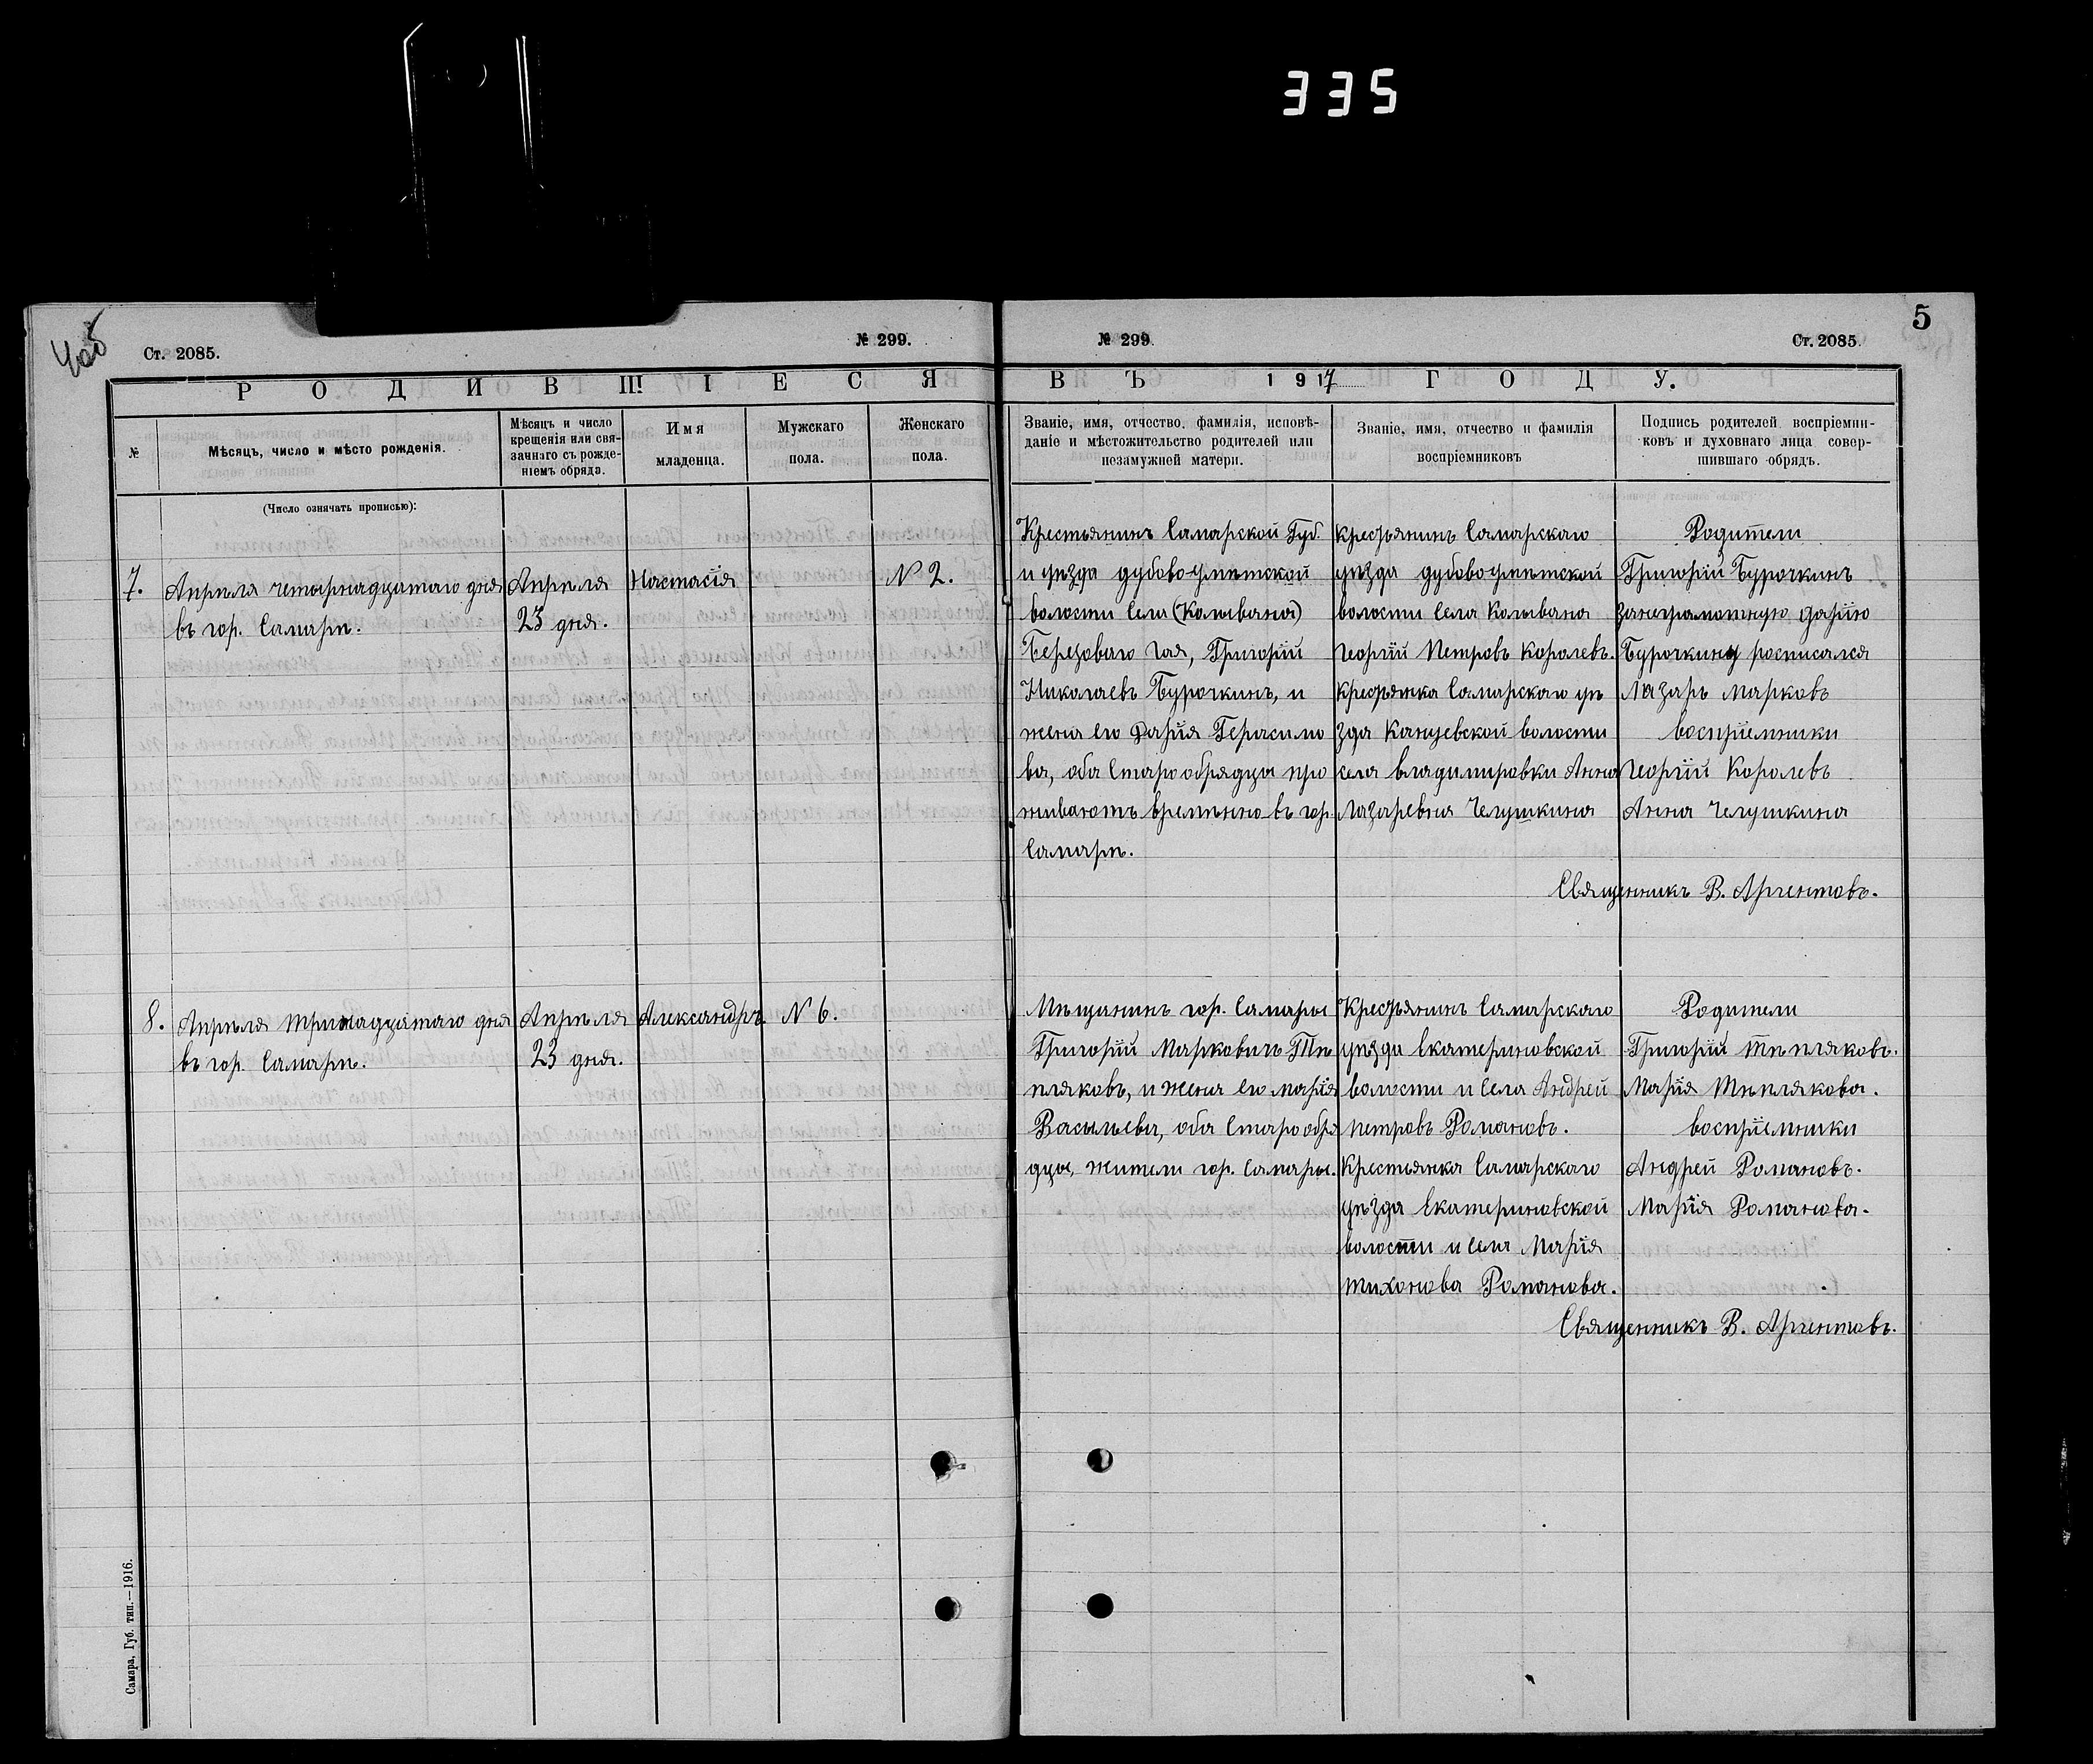 335
4об
5
Ст. 2085.
№ 299.
№ 299
Ст. 2085.
РОДИВШІЕСЯ
ВЪ 1917 ГОДУ.
№
Мѣсяцъ, число и мѣсто рожденія.
Мѣсяцъ и число
крещенія или свя-
заннаго съ рожде-
ніемъ обряда.
Имя
младенца.
Мужскаго
пола.
Женскаго
пола.
Званіе, имя, отчество, фамилія, исповѣ-
даніе и мѣстожительство родителей или
незамужней матери.
Званіе, имя, отчество и фамилія
воспріемниковъ
Подпись родителей воспріемни-
ковъ и духовнаго лица совер-
шившаго обрядъ.
(Число означать прописью):
7.
Апрѣля четырнадцатаго дня
въ гор. Самарѣ.
Апрѣля
23 дня.
Настасія
N 2.
Крестьянинъ Самарской Губ.
и уѣзда дубово-уметской
волости села (Колывана)
Березоваго Гая, Григорій
Николаевъ Бурочкинъ, и
жена его Дарія Герасимо
ва, оба старообрядцы про
живаютъ врѣменно въ гор.
Самарѣ.
Крестьянинъ Самарскаго
уѣзда дубовоуметской
волости села Колывана
Георгій Петровъ Королевъ.
Крестьянка Самарскаго уѣ
зда Кануевской волости
села владимировки Анна
Лазаревна Челушкина
Родители
Григорій Бурочкинъ
Занеграмотную дарію
Бурочкину росписался
Лазарь Марковъ
воспріемники
Георгій Королевъ
Анна Челушкина
Священникъ В. Аргентовъ.
8.
Апрѣля тринадцатаго дня
въ гор. Самарѣ.
Апрѣля
23 дня.
Александръ.
N 6.
Мѣщанинъ гор. Самары
Григорій Марковичъ Тѣ
пляковъ, и жена его Марія
Васильева, оба старообря
дцы, жители гор. Самары.
Крестьянинъ Самарскаго
уѣзда Екатериновской
волости и села Андрей
Петровъ Романовъ.
Крестьянка Самарскаго
уѣзда Екатериновской
волости и села Марія
Тихонова Романова.
Родители
Григорій Тѣпляковъ.
Марія Тѣплякова.
воспріемники
Андрей Романовъ.
Марія Романова.
Священникъ В. Аргентовъ.
Самара, Губ. тип.—1916.